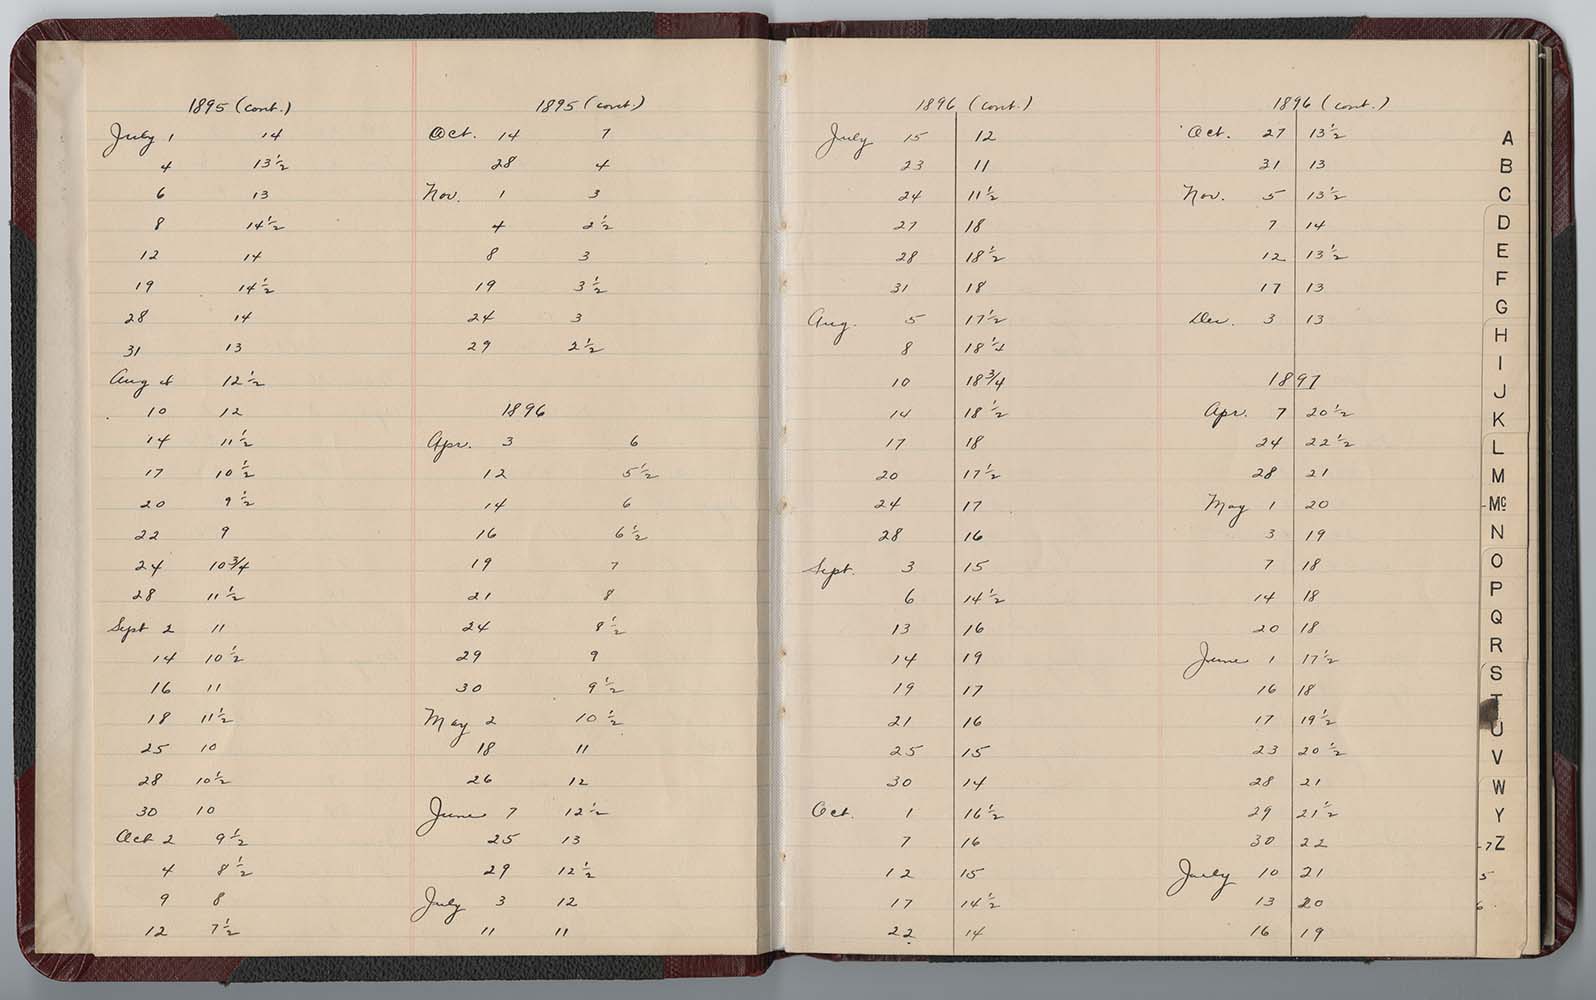 1895 (cont.)
July 1 14
4 13½
6 13
8 14½
12 14
19 14½
28 14
31 13
Aug 4 12½
10 12
14 11½
17 10½
20 9½
22 9
24 10¾
28 11½
Sept 2 11
14 10½
16 11
18 11½
25 10
28 10½
30 10
Oct 2 9½
4 8½
9 8
12 7½
1895 (cont.)
Oct. 14 7
28 4
Nov. 1 3
4 2½
8 3
19 3½
24 3
29 2½
1896
Apr. 3 6
12 5½
14 6
16 6½
19 7
21 8
24 8½
29 9
30 9½
May 2 10½
18 11
26 12
June 7 12½
25 13
29 12½
July 3 12
11 11
1896 (cont.)
July 15 12
23 11
24 11½
27 18
28 18½
31 18
Aug. 5 17½
8 18¼
10 18¾
14 18½
17 18
20 17½
24 17
28 16
Sept. 3 15
6 14½
13 16
14 19
19 17
21 16
25 15
30 14
Oct. 1 16½
7 16
12 15
17 14½
22 14
1896 (cont.)
Oct. 27 13½
31 13
Nov. 5 13½
7 14
12 13½
17 13
Dec. 3 13
1897
Apr. 7 20½
24 22½
28 21
May 1 20
3 19
7 18
14 18
20 18
June 1 17½
16 18
17 19½
23 20½
28 21
29 21½
30 22
July 10 21
13 20
16 19
A
B
C
D
E
F
G
H
I
J
K
L
M
Mc
N
O
P
Q
R
S
T
U
V
W
Y
7 Z
5
6